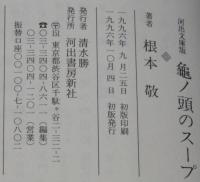 河出文庫版
亀ノ頭のスープ
著者 根本 敬
一九九六年 九 月二五日 初版印刷
一九九六年一〇月 四 日 初版発行
発行者 清水勝
発行所 河出書房新社
〒151 東京都渋谷区千駄ヶ谷二-三二-二
☎〇三-三四〇四-八六一一（編集）
〇三-三四〇四-一二〇一（営業）
振替口座〇〇一〇〇-七-一〇八〇二